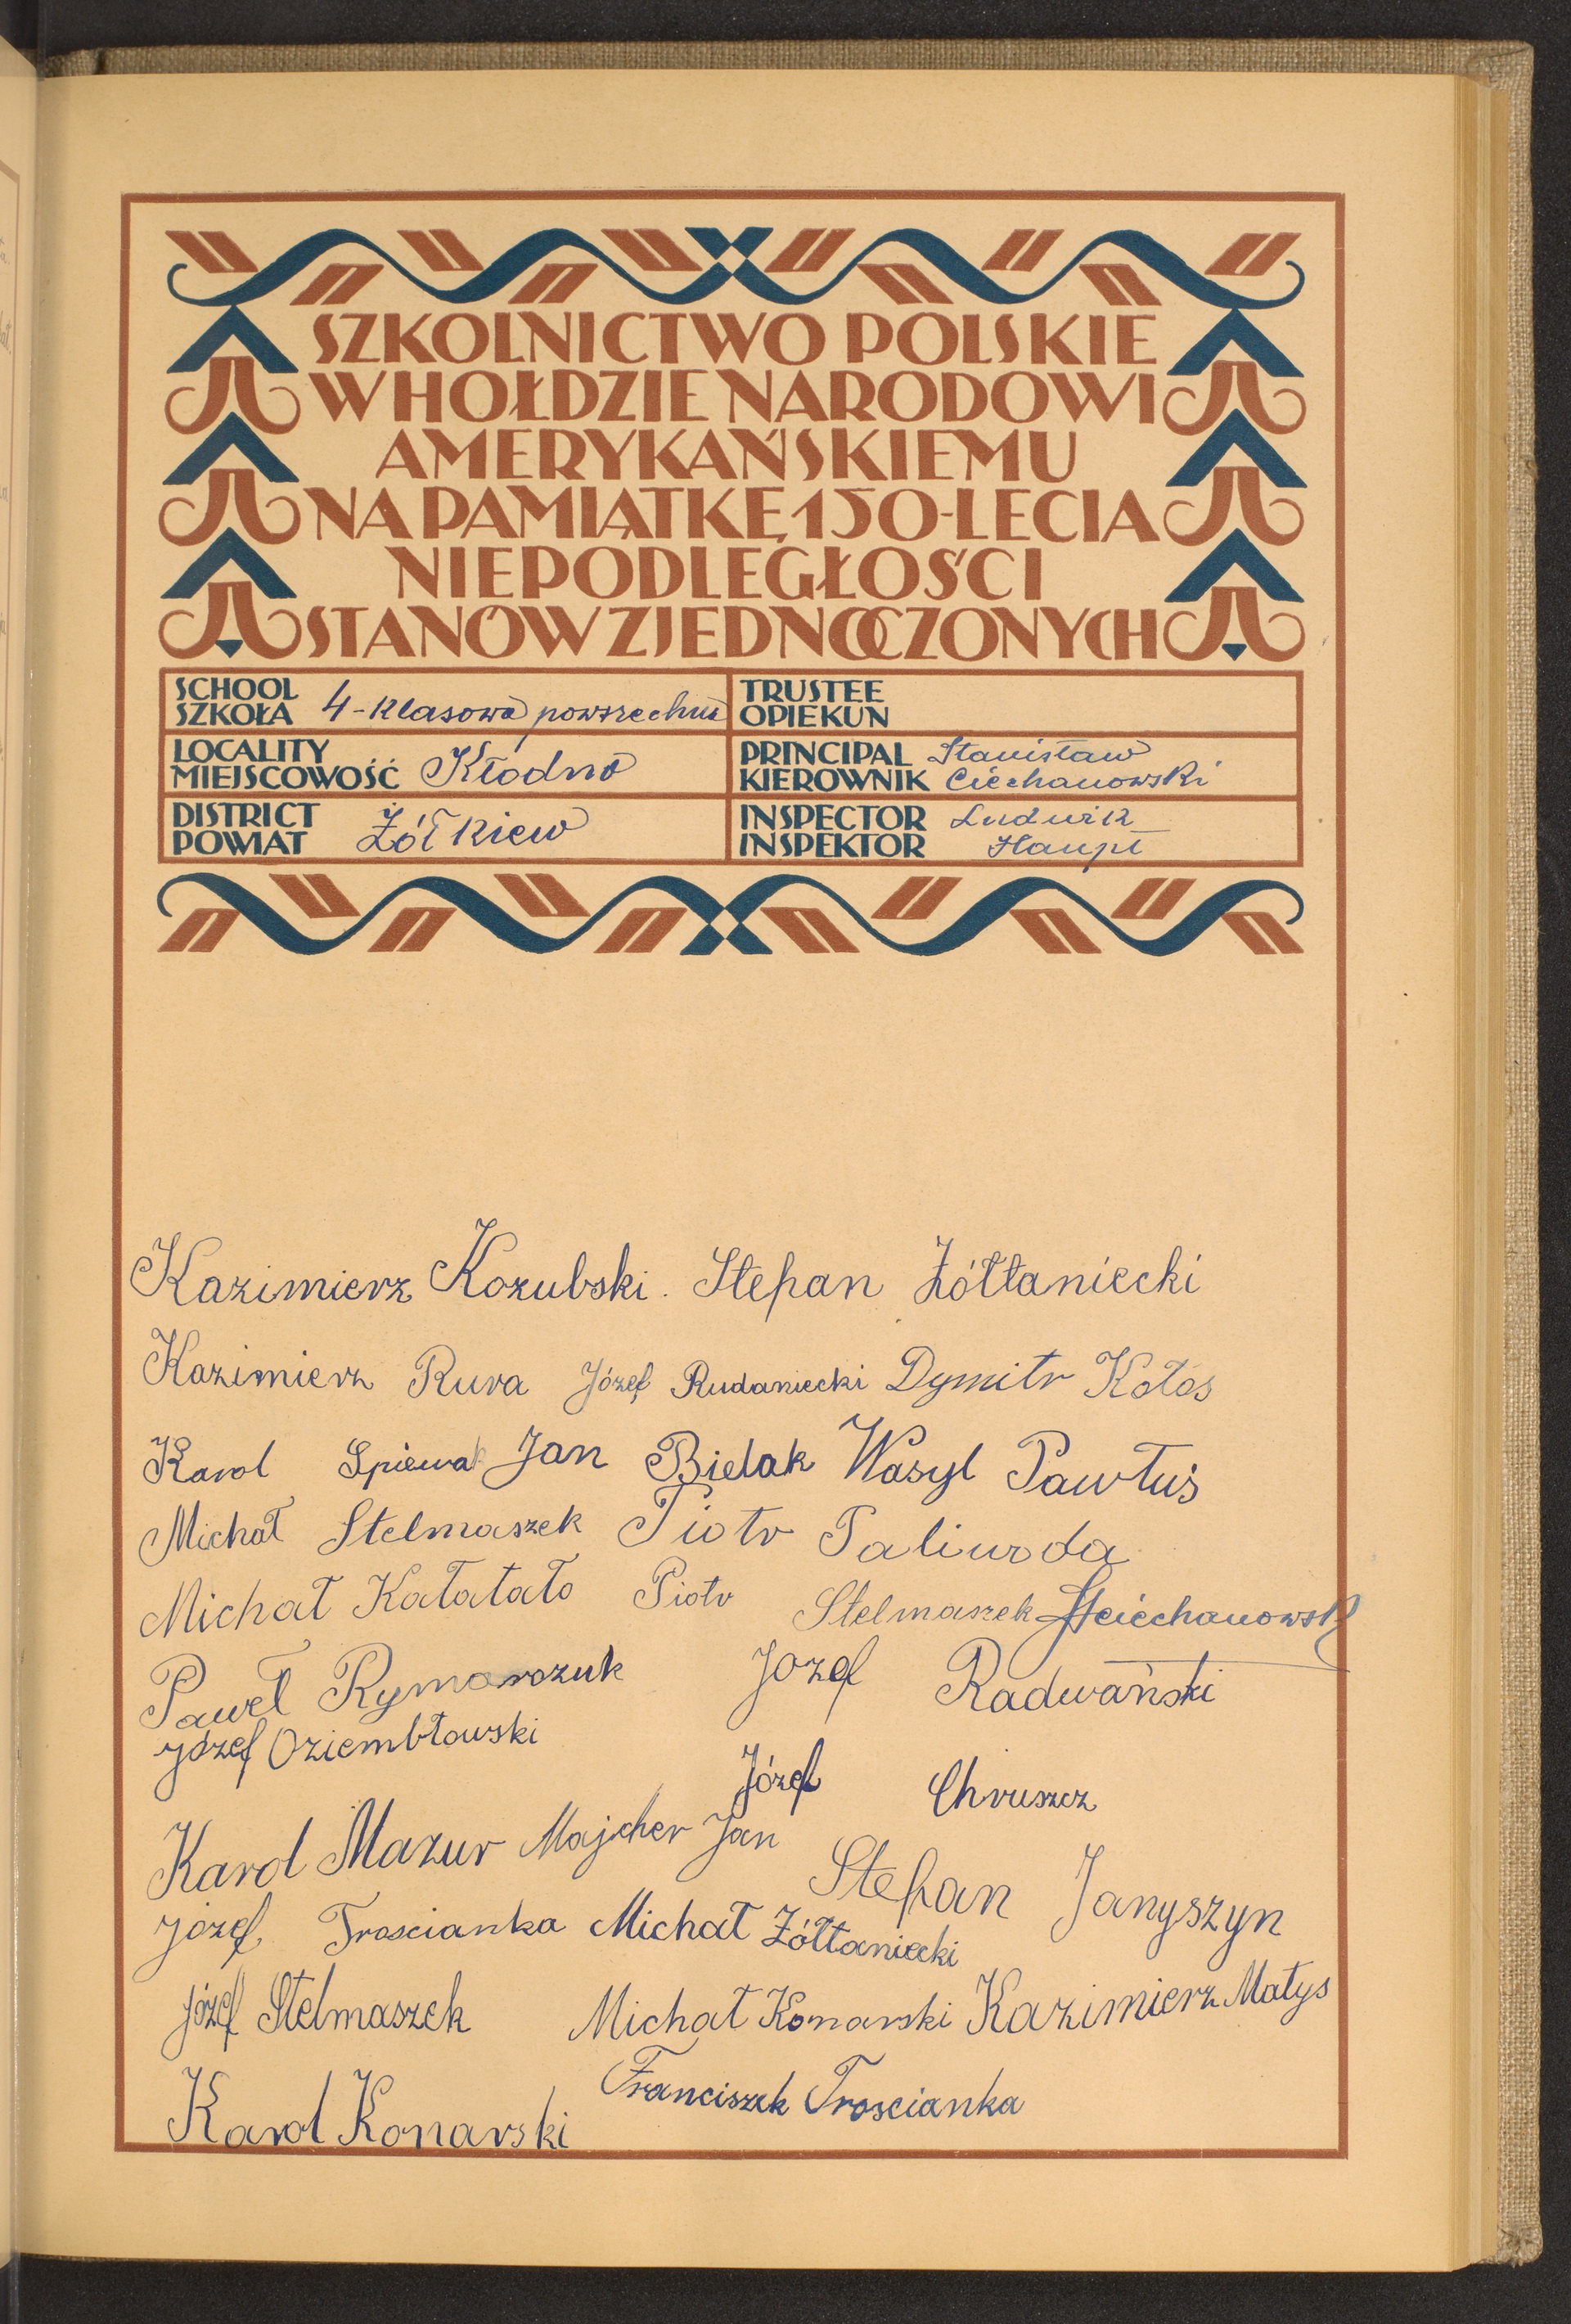 SZKOLNICTWO POLSKIE
W HOŁDZIE NARODOWI
AMERYKAŃSKIEMU
NA PAMIĄTKĘ 150-LECIA
NIEPODLEGŁOŚCI
STANÓW ZJEDNOCZONYCH
SCHOOL
SZKOŁA 4-klasowa powszechna
TRUSTEE
OPIEKUN
LOCALITY
MIEJSCOWOŚĆ Kłodno
PRINCIPAL Stanisław
KIEROWNIK Ciechanowski
DISTRICT
POWIAT Żółkiew
INSPECTOR Ludwik
INSPEKTOR Haupt
Kazimierz Kozubski. Stefan Żółtaniecki
Kazimierz Rura Józef Rudaniecki Dymitr Kołos
Karol Spiewak Jan Bielak Wasyl Pawłuś
Michał Stelmaszek Piotr Paliwoda
Michał Kałatało Piotr Stelmaszek StCiechanowski
Paweł Rymarczuk Jozef Radwański
Józef Oziembłowski
Józef Chruszcz
Karol Mazur Majcher Jan
Stefan Janyszyn
Józef Troscianka Michał Żółtaniecki
Józef Stelmaszek Michał Konarski Kazimierz Matys
Franciszek Troscianka
Karol Konarski